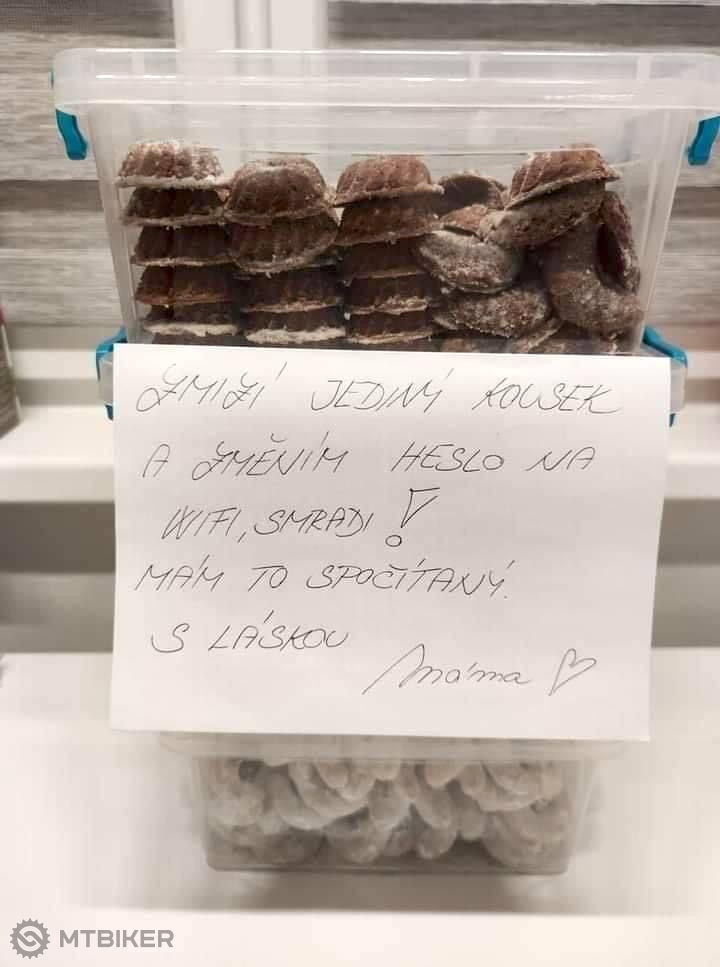 ZMIZÍ JEDINÝ KOUSEK
A ZMĚNÍM HESLO NA
WIFI, SMRADI!
MÁM TO SPOČÍTANÝ.
S LÁSKOU
Máma ♡
MTBIKER